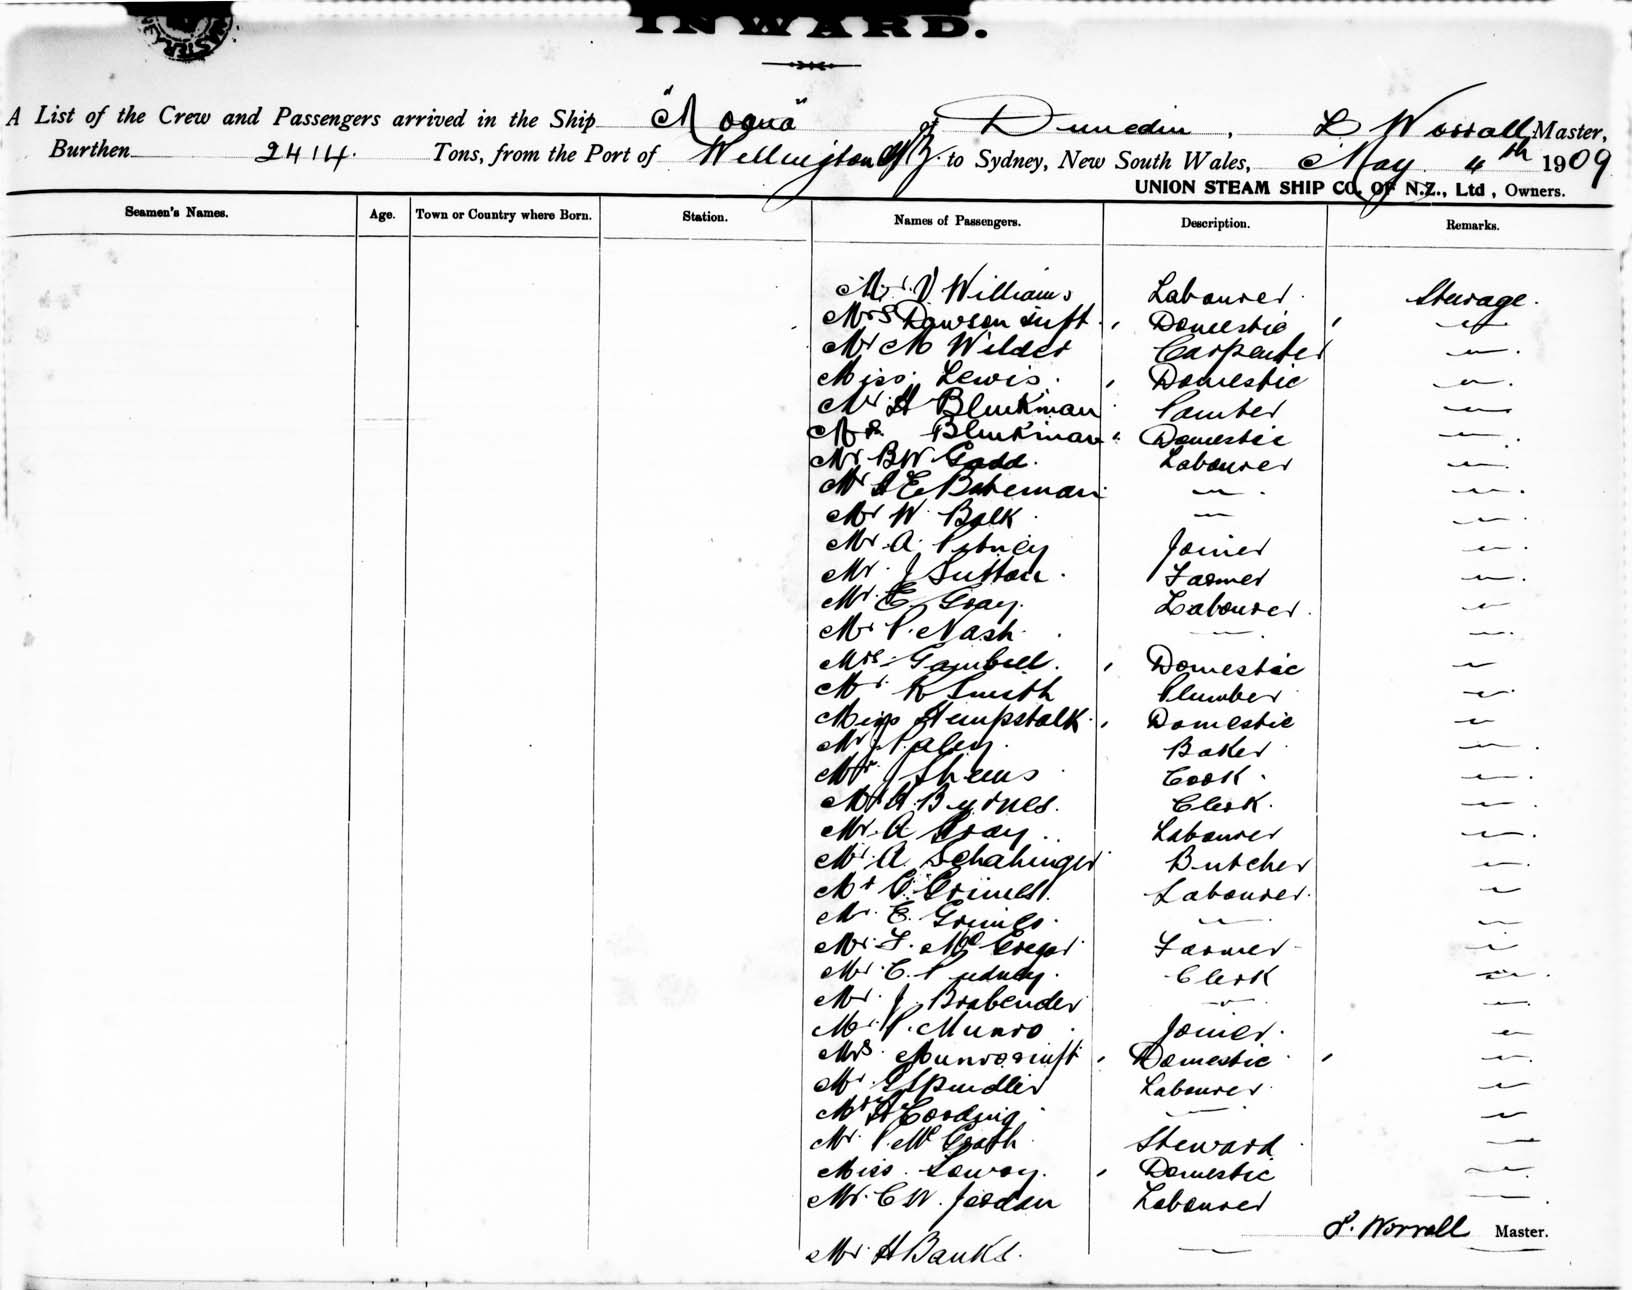 INWARD.
A List of the Crew and Passengers arrived in the Ship "Moana" of Dunedin, L Worrall Master,
Burthen 2414 Tons, from the Port of Wellington NZ to Sydney, New South Wales, May 4th 1909
UNION STEAM SHIP CO. OF N.Z., Ltd, Owners.
Seamen's Names. Age. Town or Country where Born. Station. Names of Passengers. Description. Remarks.
Mr. V Williams Labourer Steerage.
Mrs Dawson Domestic "
Mr M Wilder Carpenter "
Miss Lewis Domestic "
Mr H Blinkman "
Mrs Blinkman Domestic "
Mr BW Gadd Labourer "
Mr A E Bateman " "
Mr W Balk " "
Mr A. Joiner "
Mr J Sutton Farmer "
Mr E. Gray Labourer "
Mr P. Nash " "
Mrs Gambell Domestic "
Mr R Smith Plumber "
Miss Hempstalk Domestic "
Mr Baker "
Mr J Cook "
Mr H. Byrnes Clerk "
Mr A Gray Labourer "
Mr A. Schahinger Butcher "
Mr C. Grimes Labourer "
Mr E. Grimes " "
Mr F. McGregor Farmer "
Mr C. Pudney Clerk "
Mr J. Brabender " "
Mr P. Munro Joiner "
Mrs Munro & inft Domestic "
Mr G Spindler Labourer "
Mr H Gooding " "
Mr P. McGrath Steward "
Miss Domestic "
Mr C W. Jordan Labourer "
L. Worrall Master.
Mr H Banks " "